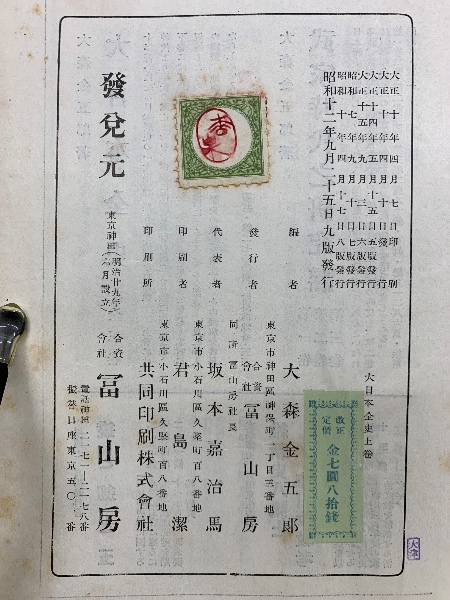 大正十年四月七日印刷
大正十年四月十日發行
大正十四年四月十五日五版發行
大正十五年九月二日六版發行
昭和七年九月十日七版發行
昭和十年四月十七日八版發行
昭和十二年九月二十五日九版發行
大日本全史上卷
改正
定價
金七圓八拾錢
編者
大森金五郎
東京市神田區神保町一丁目三番地
發行者
合資
會社
冨山房
同所 冨山房社長
代表者
坂本嘉治馬
東京市小石川區久堅町百八番地
印刷者
君島潔
東京市小石川區久堅町百八番地
印刷所
共同印刷株式會社
發兌元
東京神田
(明治廿九年
六月設立)
合資
會社
冨山房
電話神田二一七一―二一七八番
振替口座東京五〇一番